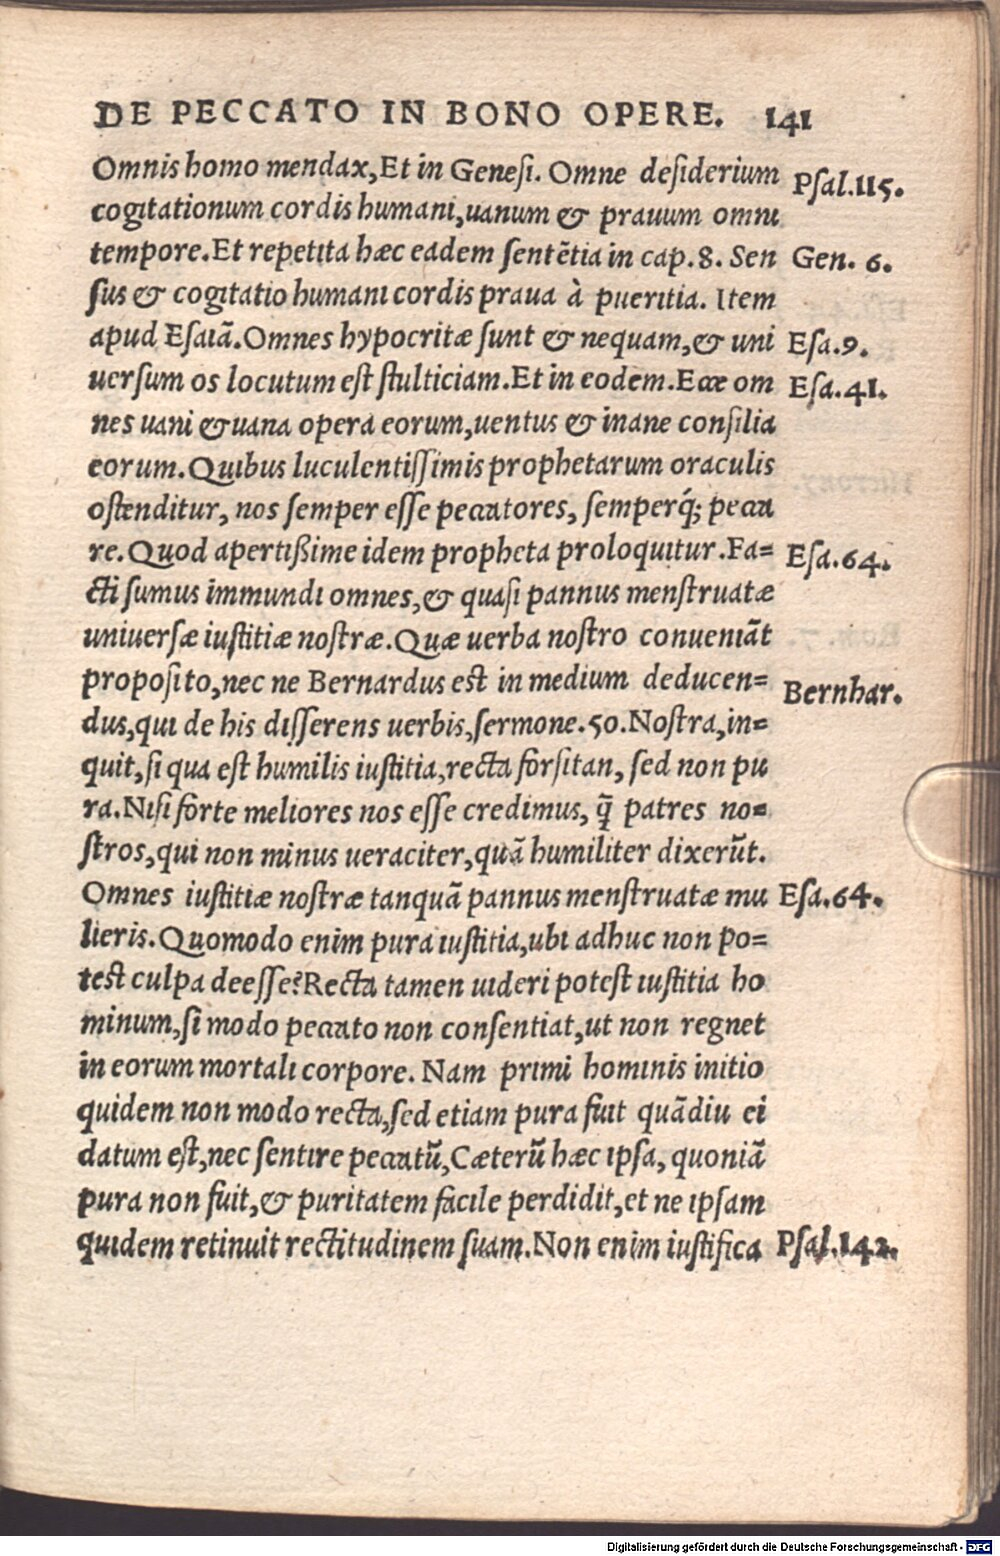 DE PECCATO IN BONO OPERE. 141
Omnis homo mendax, Et in Genesi. Omne desiderium Psal.115.
cogitationum cordis humani, uanum & prauum omni
tempore. Et repetita hæc eadem sentẽtia in cap. 8. Sen Gen. 6.
sus & cogitatio humani cordis praua à pueritia. Item
apud Esaiã. Omnes hypocritæ sunt & nequam, & uni Esa.9.
uersum os locutum est stulticiam. Et in eodem. Ecce om Esa.41.
nes uani & uana opera eorum, uentus & inane consilia
eorum. Quibus luculentissimis prophetarum oraculis
ostenditur, nos semper esse peccatores, semperq́; pecca
re. Quod apertißime idem propheta proloquitur. Fa= Esa.64.
cti sumus immundi omnes, & quasi pannus menstruatæ
uniuersæ iustitiæ nostræ. Quæ uerba nostro conueniãt
proposito, nec ne Bernardus est in medium deducen= Bernhar.
dus, qui de his disserens uerbis, sermone. 50. Nostra, in=
quit, si qua est humilis iustitia, recta forsitan, sed non pu
ra. Nisi forte meliores nos esse credimus, q̃ patres no=
stros, qui non minus ueraciter, quã humiliter dixerũt.
Omnes iustitiæ nostræ tanquã pannus menstruatæ mu Esa.64.
lieris. Quomodo enim pura iustitia, ubi adhuc non po=
test culpa deesse? Recta tamen uideri potest iustitia ho
minum, si modo peccato non consentiat, ut non regnet
in eorum mortali corpore. Nam primi hominis initio
quidem non modo recta, sed etiam pura fuit quãdiu ei
datum est, nec sentire peccatũ, Cæterũ hæc ipsa, quoniã
pura non fuit, & puritatem facile perdidit, et ne ipsam
quidem retinuit rectitudinem suam. Non enim iustifica Psal.142.
Digitalisierung gefördert durch die Deutsche Forschungsgemeinschaft - DFG